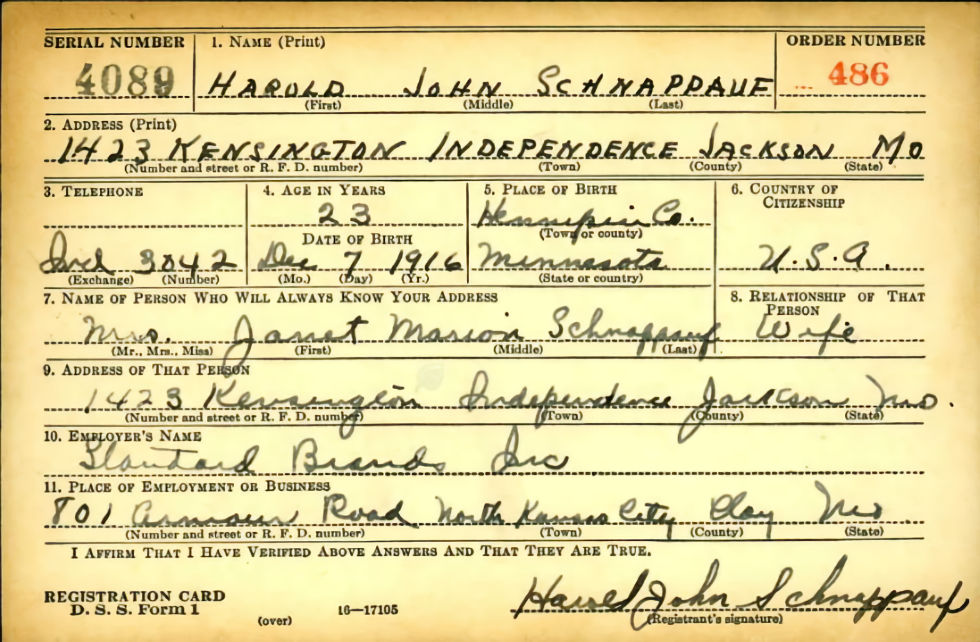 SERIAL NUMBER 1. NAME (Print) ORDER NUMBER
4089 HAROLD JOHN SCHNAPPAUF 486
(First) (Middle) (Last)
2. ADDRESS (Print)
1423 KENSINGTON INDEPENDENCE JACKSON MO
(Number and street or R. F. D. number) (Town) (County) (State)
3. TELEPHONE 4. AGE IN YEARS 5. PLACE OF BIRTH 6. COUNTRY OF CITIZENSHIP
23 Hennepin Co.
DATE OF BIRTH (Town or county)
Ind 3042 Dec 7 1916 Minnesota U.S.A.
(Exchange) (Number) (Mo.) (Day) (Yr.) (State or country)
7. NAME OF PERSON WHO WILL ALWAYS KNOW YOUR ADDRESS 8. RELATIONSHIP OF THAT PERSON
Mrs. Janet Marion Schnappauf Wife
(Mr., Mrs., Miss) (First) (Middle) (Last)
9. ADDRESS OF THAT PERSON
1423 Kensington Independence Jackson Mo.
(Number and street or R. F. D. number) (Town) (County) (State)
10. EMPLOYER'S NAME
Standard Brands Inc
11. PLACE OF EMPLOYMENT OR BUSINESS
801 Armour Road North Kansas City Clay Mo
(Number and street or R. F. D. number) (Town) (County) (State)
I AFFIRM THAT I HAVE VERIFIED ABOVE ANSWERS AND THAT THEY ARE TRUE.
REGISTRATION CARD
D. S. S. Form 1 (over) 16—17105 Harold John Schnappauf
(Registrant's signature)